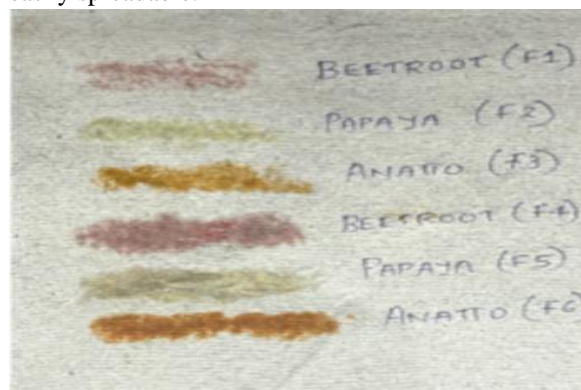 BEETROOT (F1)
PAPAYA (F2)
ANATTO (F3)
BEETROOT (F4)
PAPAYA (F5)
ANATTO (F6